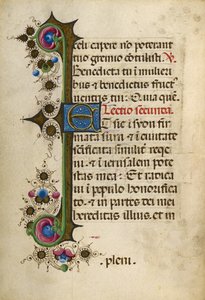 celi capere nõ poterant
tuo gremio cõtulisti. V.
Benedicta tu ĩ mulieri
bus & benedictus fruct9
uentris tui. O uia que.
Lectio secunda.
ET sic i syon firi
mata sum & i ciuitate
scificata similit' requie
ui & i ierusalem pote
stas mea: Et radica
ui i populo honorifica
to. & in partes dei mei
hereditas illius. et in
pleni.